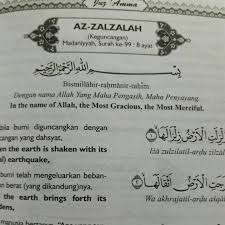 Juz 'Amma
AZ-ZALZALAH
(Keguncangan)
Madaniyyah, Surah ke-99 : 8 ayat
بِسْمِ اللَّهِ الرَّحْمَٰنِ الرَّحِيمِ
Bismillāhir-raḥmānir-raḥīm.
Dengan nama Allah Yang Maha Pengasih, Maha Penyayang.
In the name of Allah, the Most Gracious, the Most Merciful.
bila bumi diguncangkan dengan
cangan yang dahsyat,
en the earth is shaken with its
al) earthquake,
bumi telah mengeluarkan beban-
an berat (yang dikandung)nya,
the earth brings forth its
dens,
manusia bertanya
زُلْزِلَتِ الْأَرْضُ زِلْزَالَهَا ١
Iżā zulzilatil-arḍu zilzāl
جَتِ الْأَرْضُ أَثْقَالَهَا ٢
Wa akhrajatil-arḍu aṡqāl